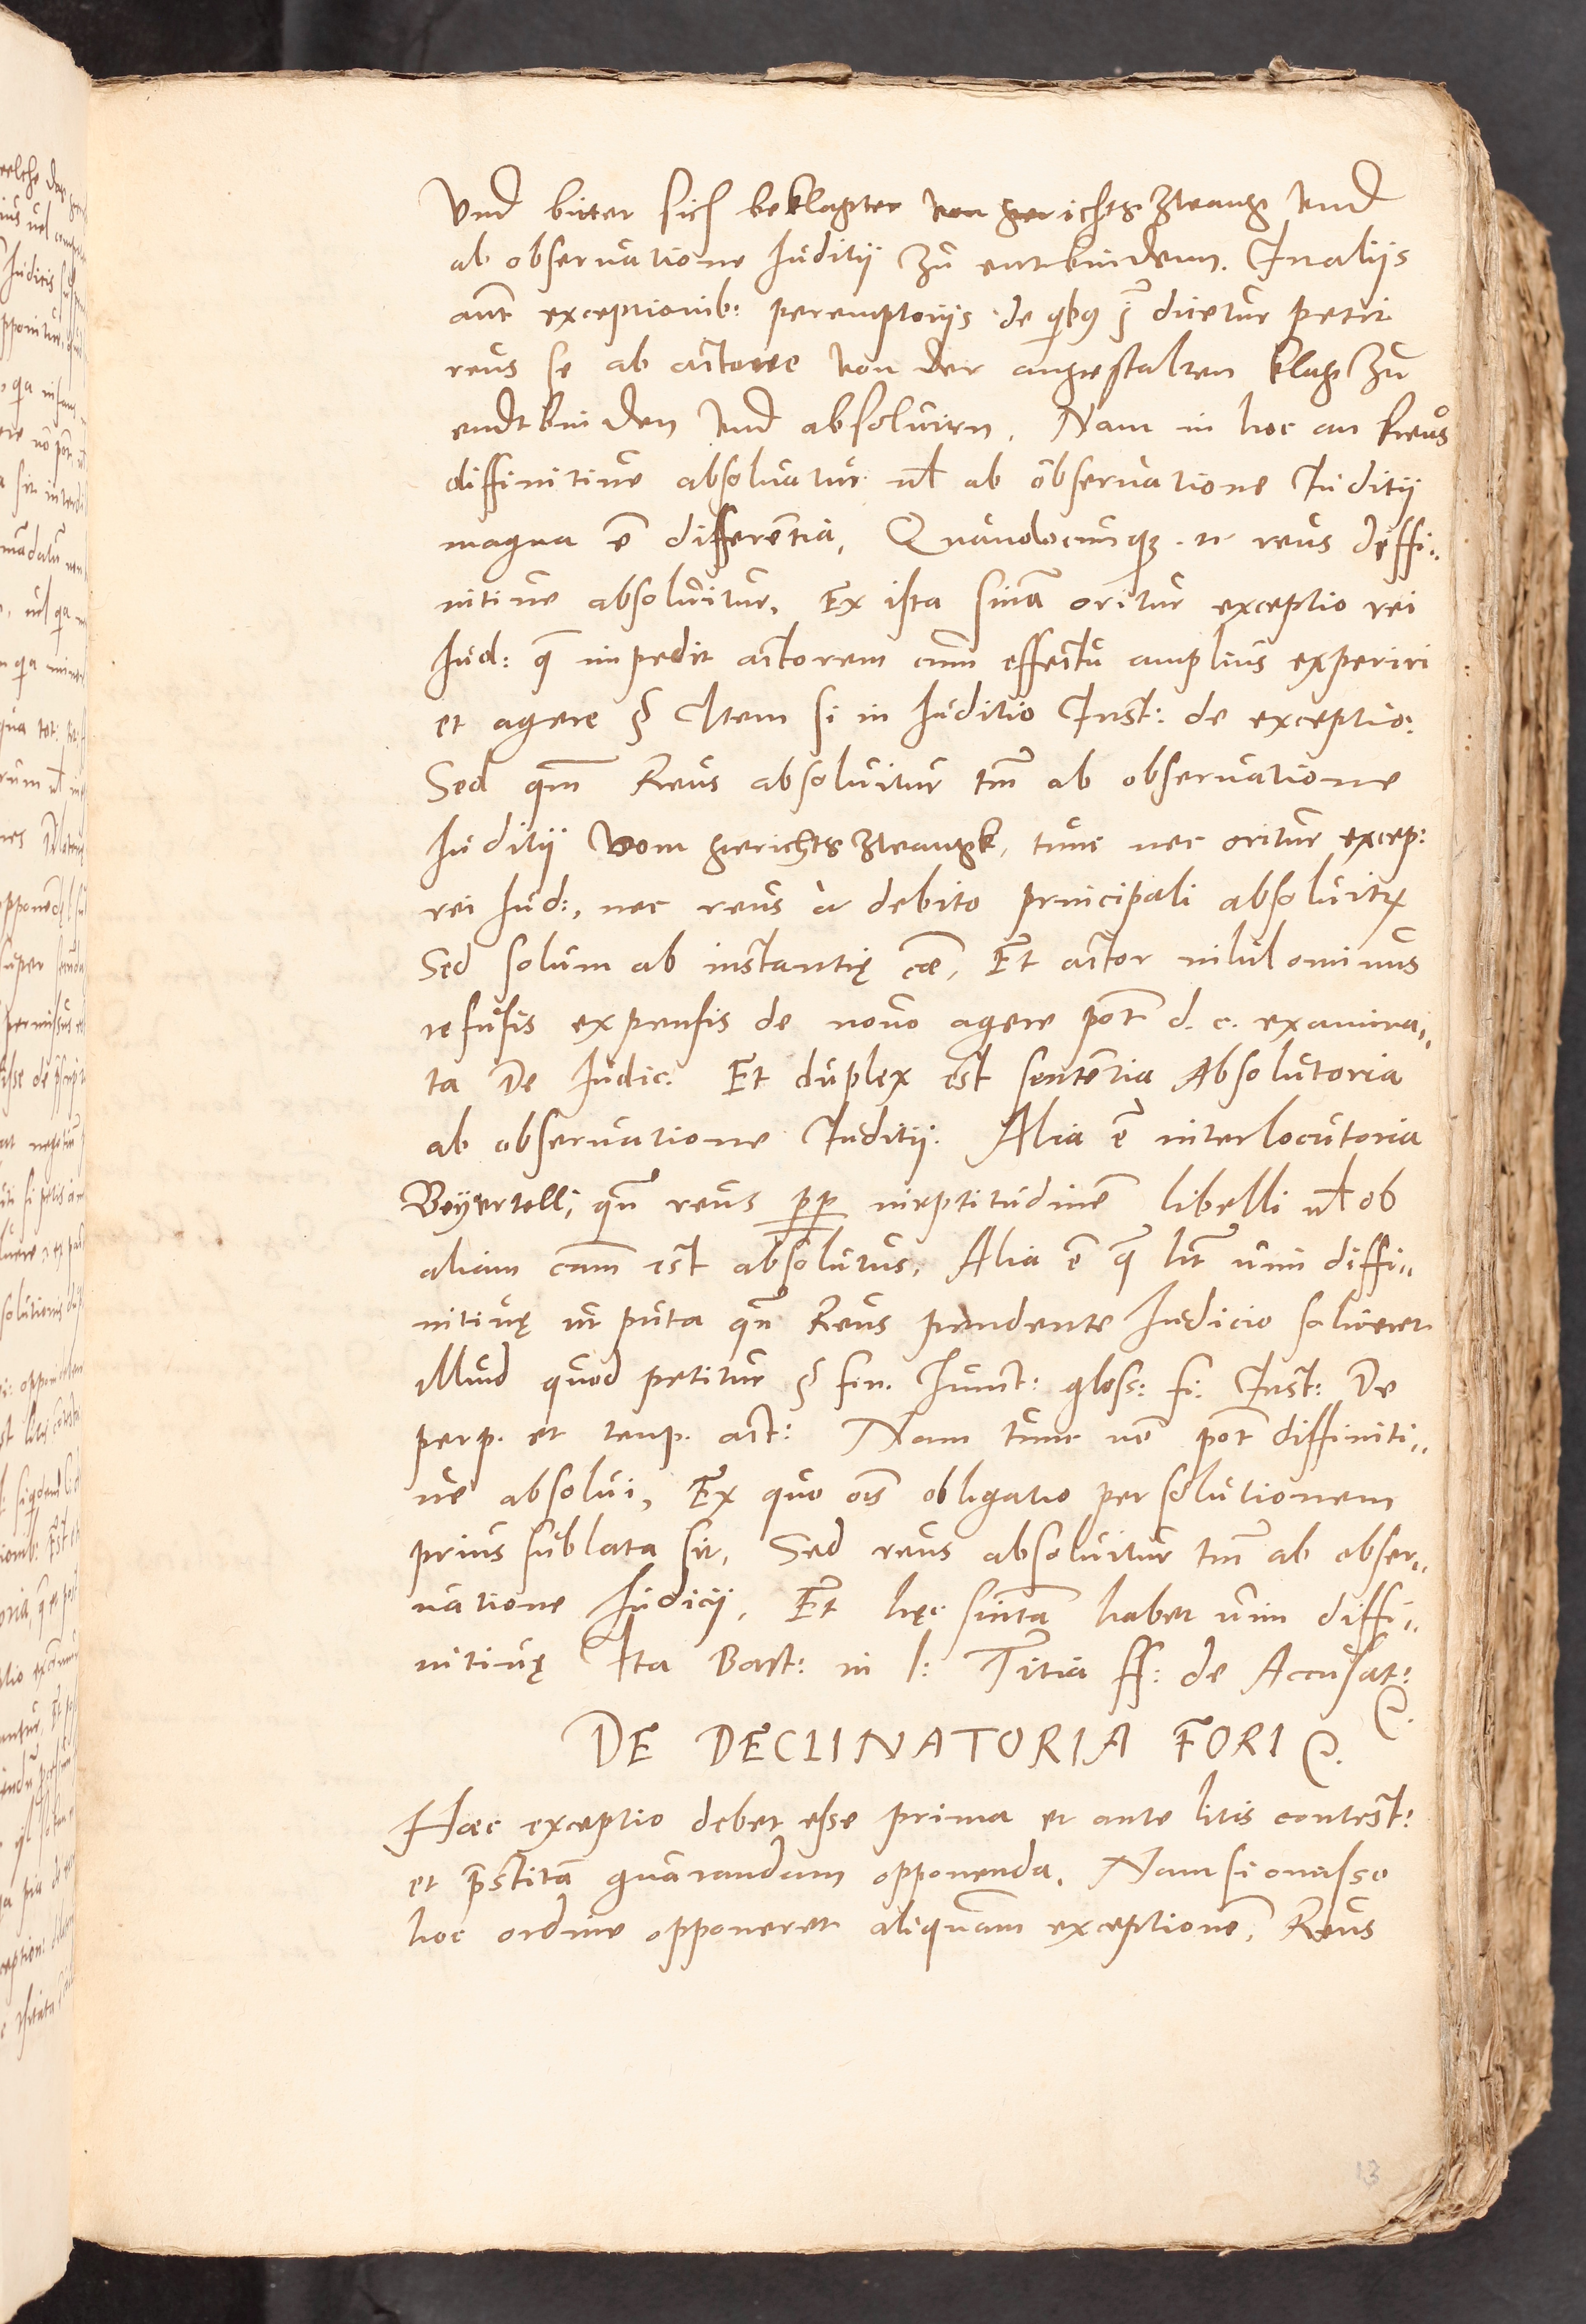 Vnd bittet sich beklagter von gerichtszwang vnd
ab obseruatione Iuditii zu entbindenn. In aliis
aut̄ exceptionib: peremptoriis de qibꝰ j dicetur petit
reus se ab actore von der angestalten klag zu
endtbinden vnd absoluirn. Nam in hoc an Reus
diffinitiue absoluatur ul̄ ab obseruatione Iuditii
magna ē differētia, Quandocunqꝫ .n. reus deffi„
nitiue absoluitur, Ex ista sn̄ia oritur exceptio rei
Iud: q̄ impedit actorem cum effectu amplius experiri
et agere § Item si in Iuditio Inst: de exceptio:
Sed qn̄ Reus absoluitur tm̄ ab obseruatione
Iuditii vom gerichtszwangk, tunc nec oritur excep:
rei Iud:, nec reus à debito principali absoluitr
Sed solum ab instantię cā, Et actor nihilominus
refusis expensis de nouo agere pōt d. c. examina„
ta De Iudic. Et duplex est sentētia Absolutoria
ab obseruatione Iuditii. Alia ē interlocutoria
Beyurtell; qn̄ reus pp̄ ineptitudinē libelli ul̄ ob
aliam cām est absolutus, Alia ē q̄ h̄t uim diffi„
nitiuę ut puta qn̄ Reus pendente Iudicio solueret
illud quod petitur § fin. Iunct: gloss: fi: Inst: De
perp. et temp. act: Nam tunc nō pōt diffiniti„
ue absolui, Ex quo oīs obligatio per solutionem
prius sublata sit, Sed reus absoluitur tm̄ ab obser„
uatione Iudicii, Et hęc sn̄tia habet uim diffi„
nitiuę Ita Bart: in l: Titia ff: de Accusat:
DE DECLINATORIA FORI
Haec exceptio debet esse prima et ante litis contest:
et p̄stitā guarandam opponenda. Nam si omisso
hoc ordine opponeret aliquam exceptionē, Reus
13